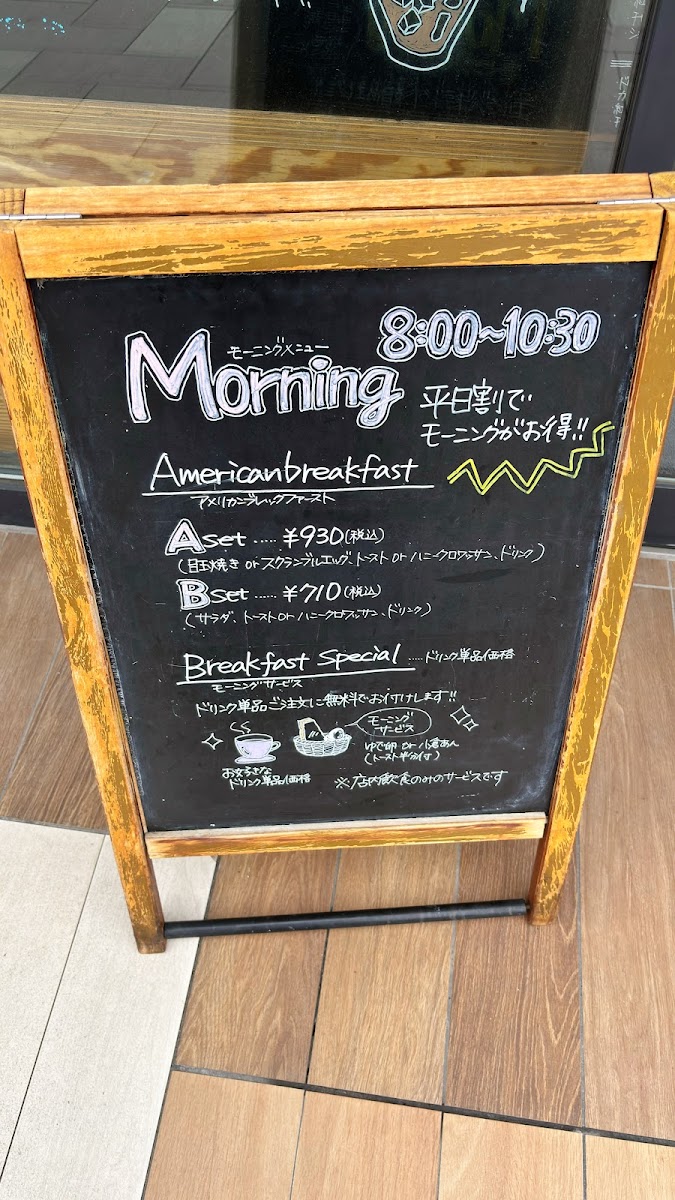 モーニングメニュー
Morning
8:00~10:30
平日割で
モーニングがお得!!
Americanbreakfast
アメリカンブレックファースト
Aset ..... ¥930(税込)
(目玉焼き or スクランブルエッグ、トースト or ハニークロワッサン、ドリンク)
Bset ..... ¥710(税込)
(サラダ、トースト or ハニークロワッサン、ドリンク)
Breakfast Special ..... ドリンク単品価格
モーニングサービス
ドリンク単品ご注文に無料でお付けします!!
モーニング
サービス
ゆで卵 or 小倉あん
(トースト半分付)
お好きな
ドリンク単品価格
※店内飲食のみのサービスです